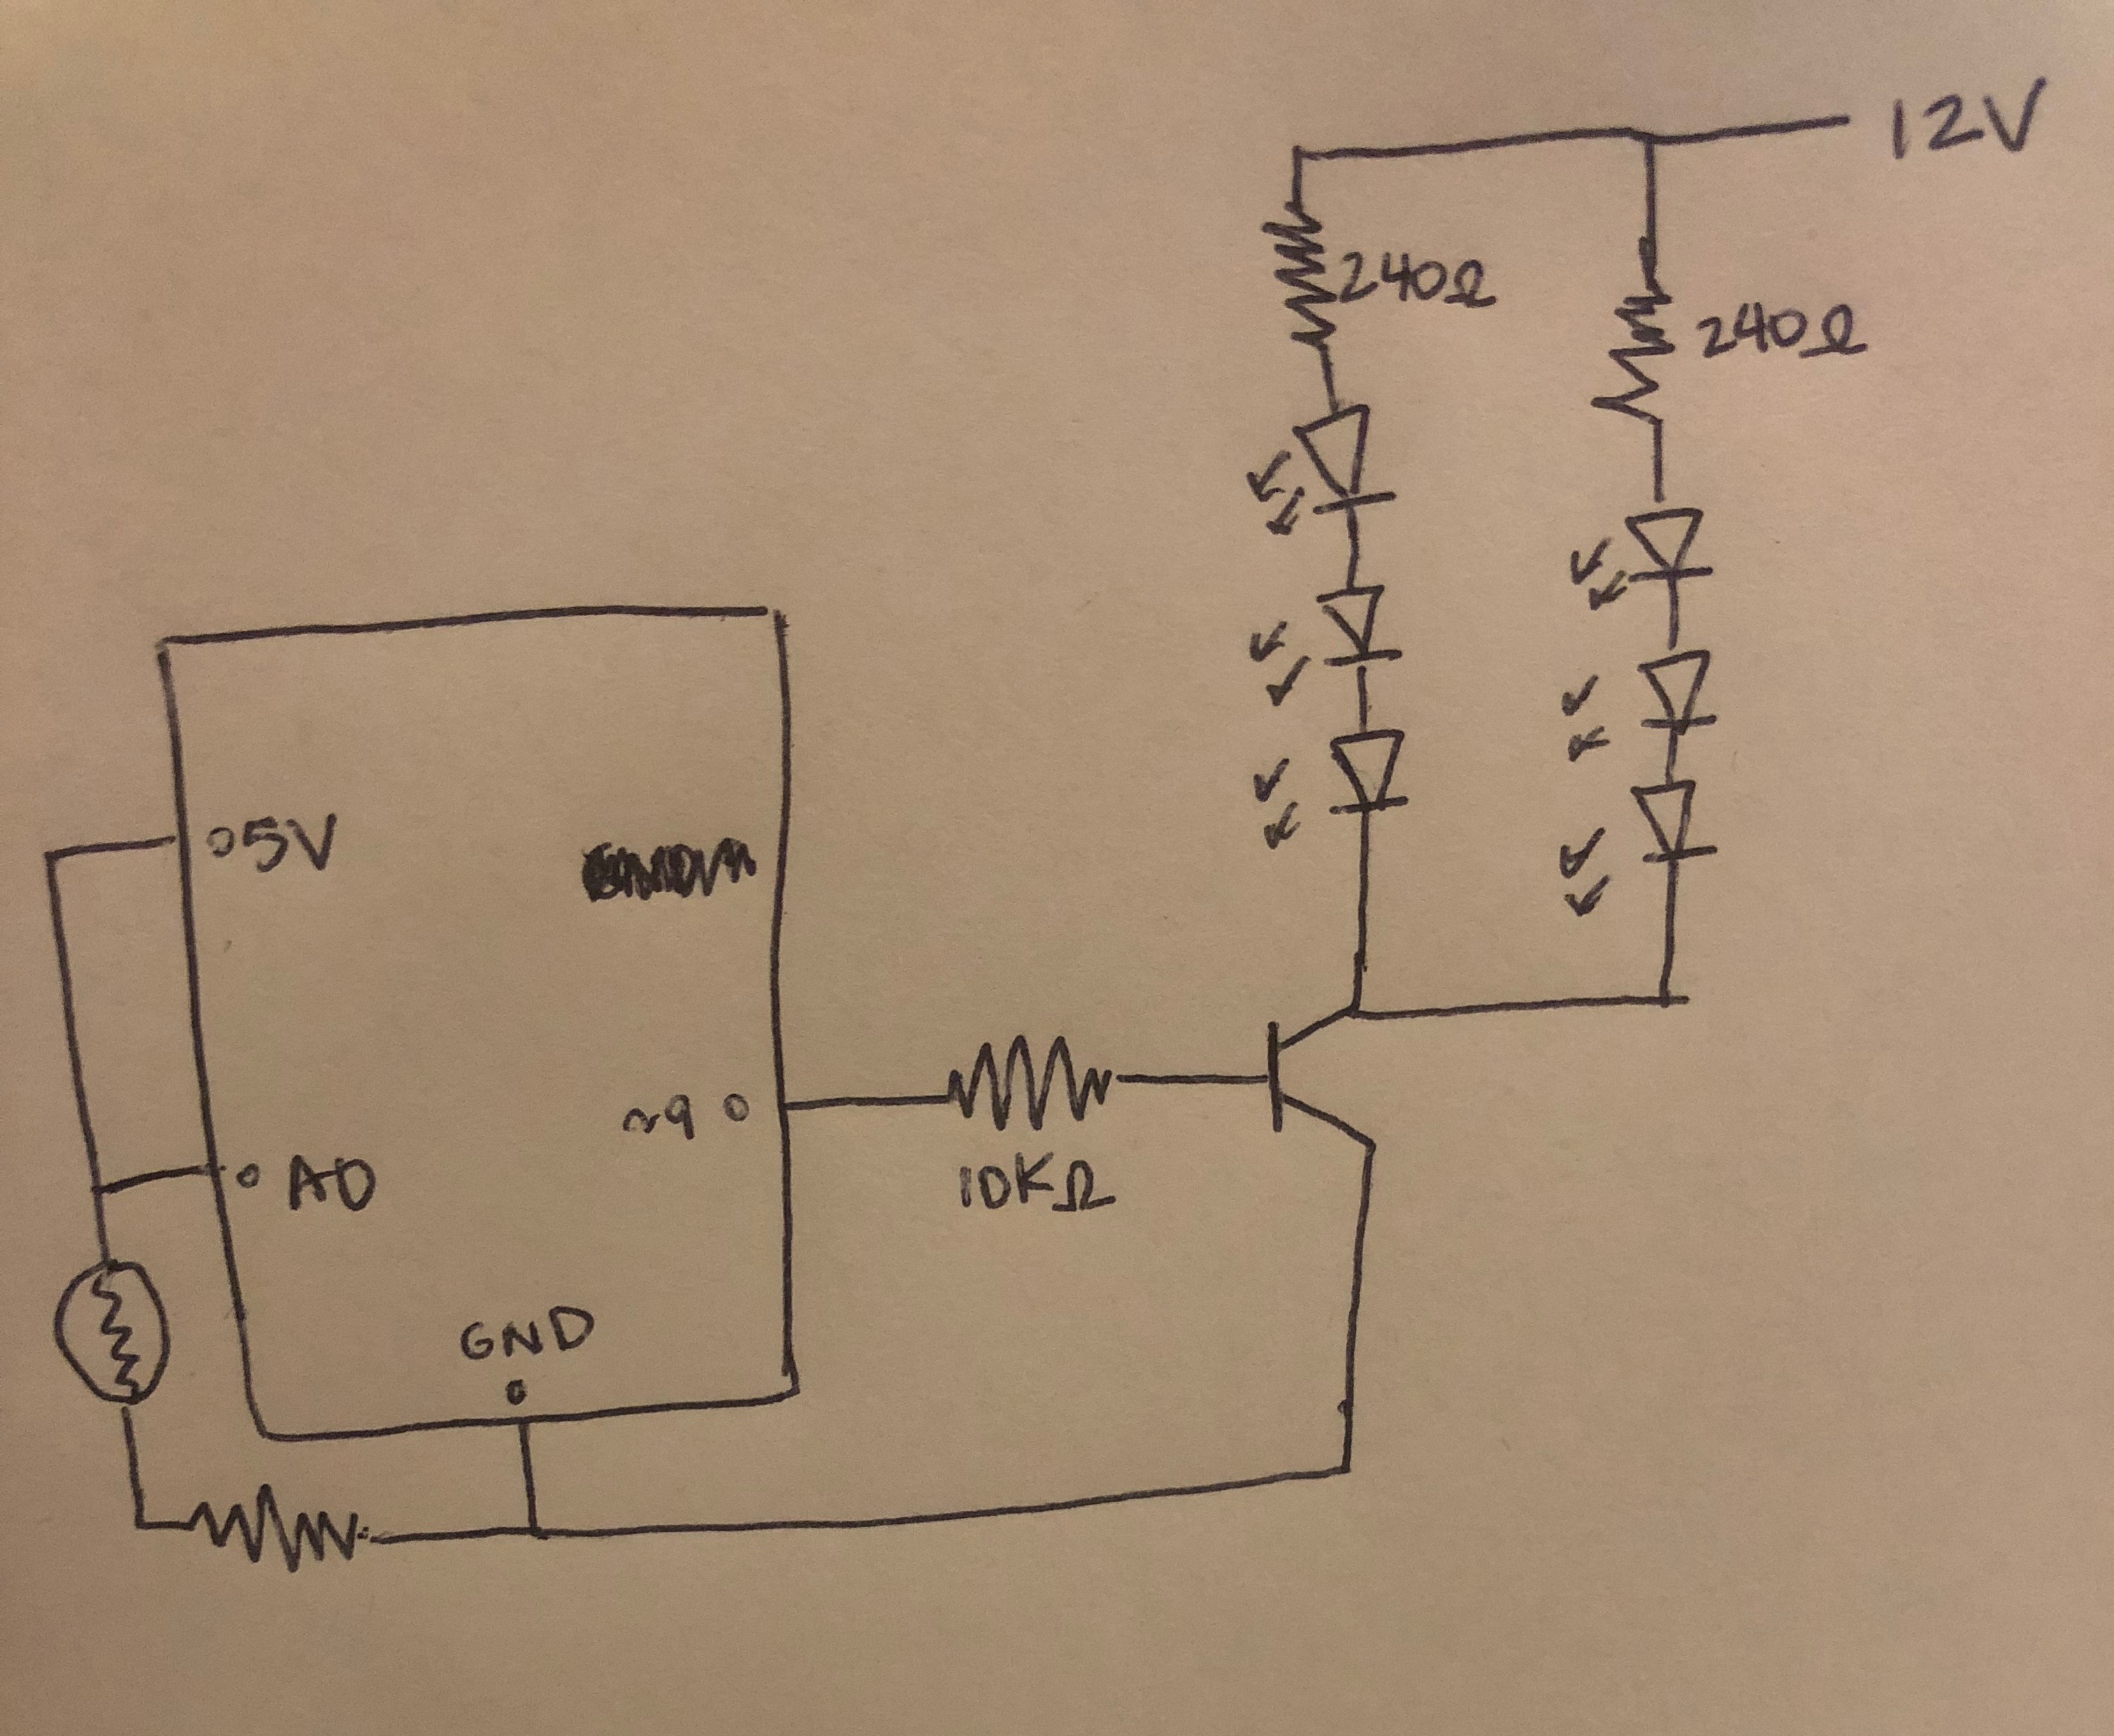 12V
240Ω
240Ω
5V
~9
A0
10KΩ
GND